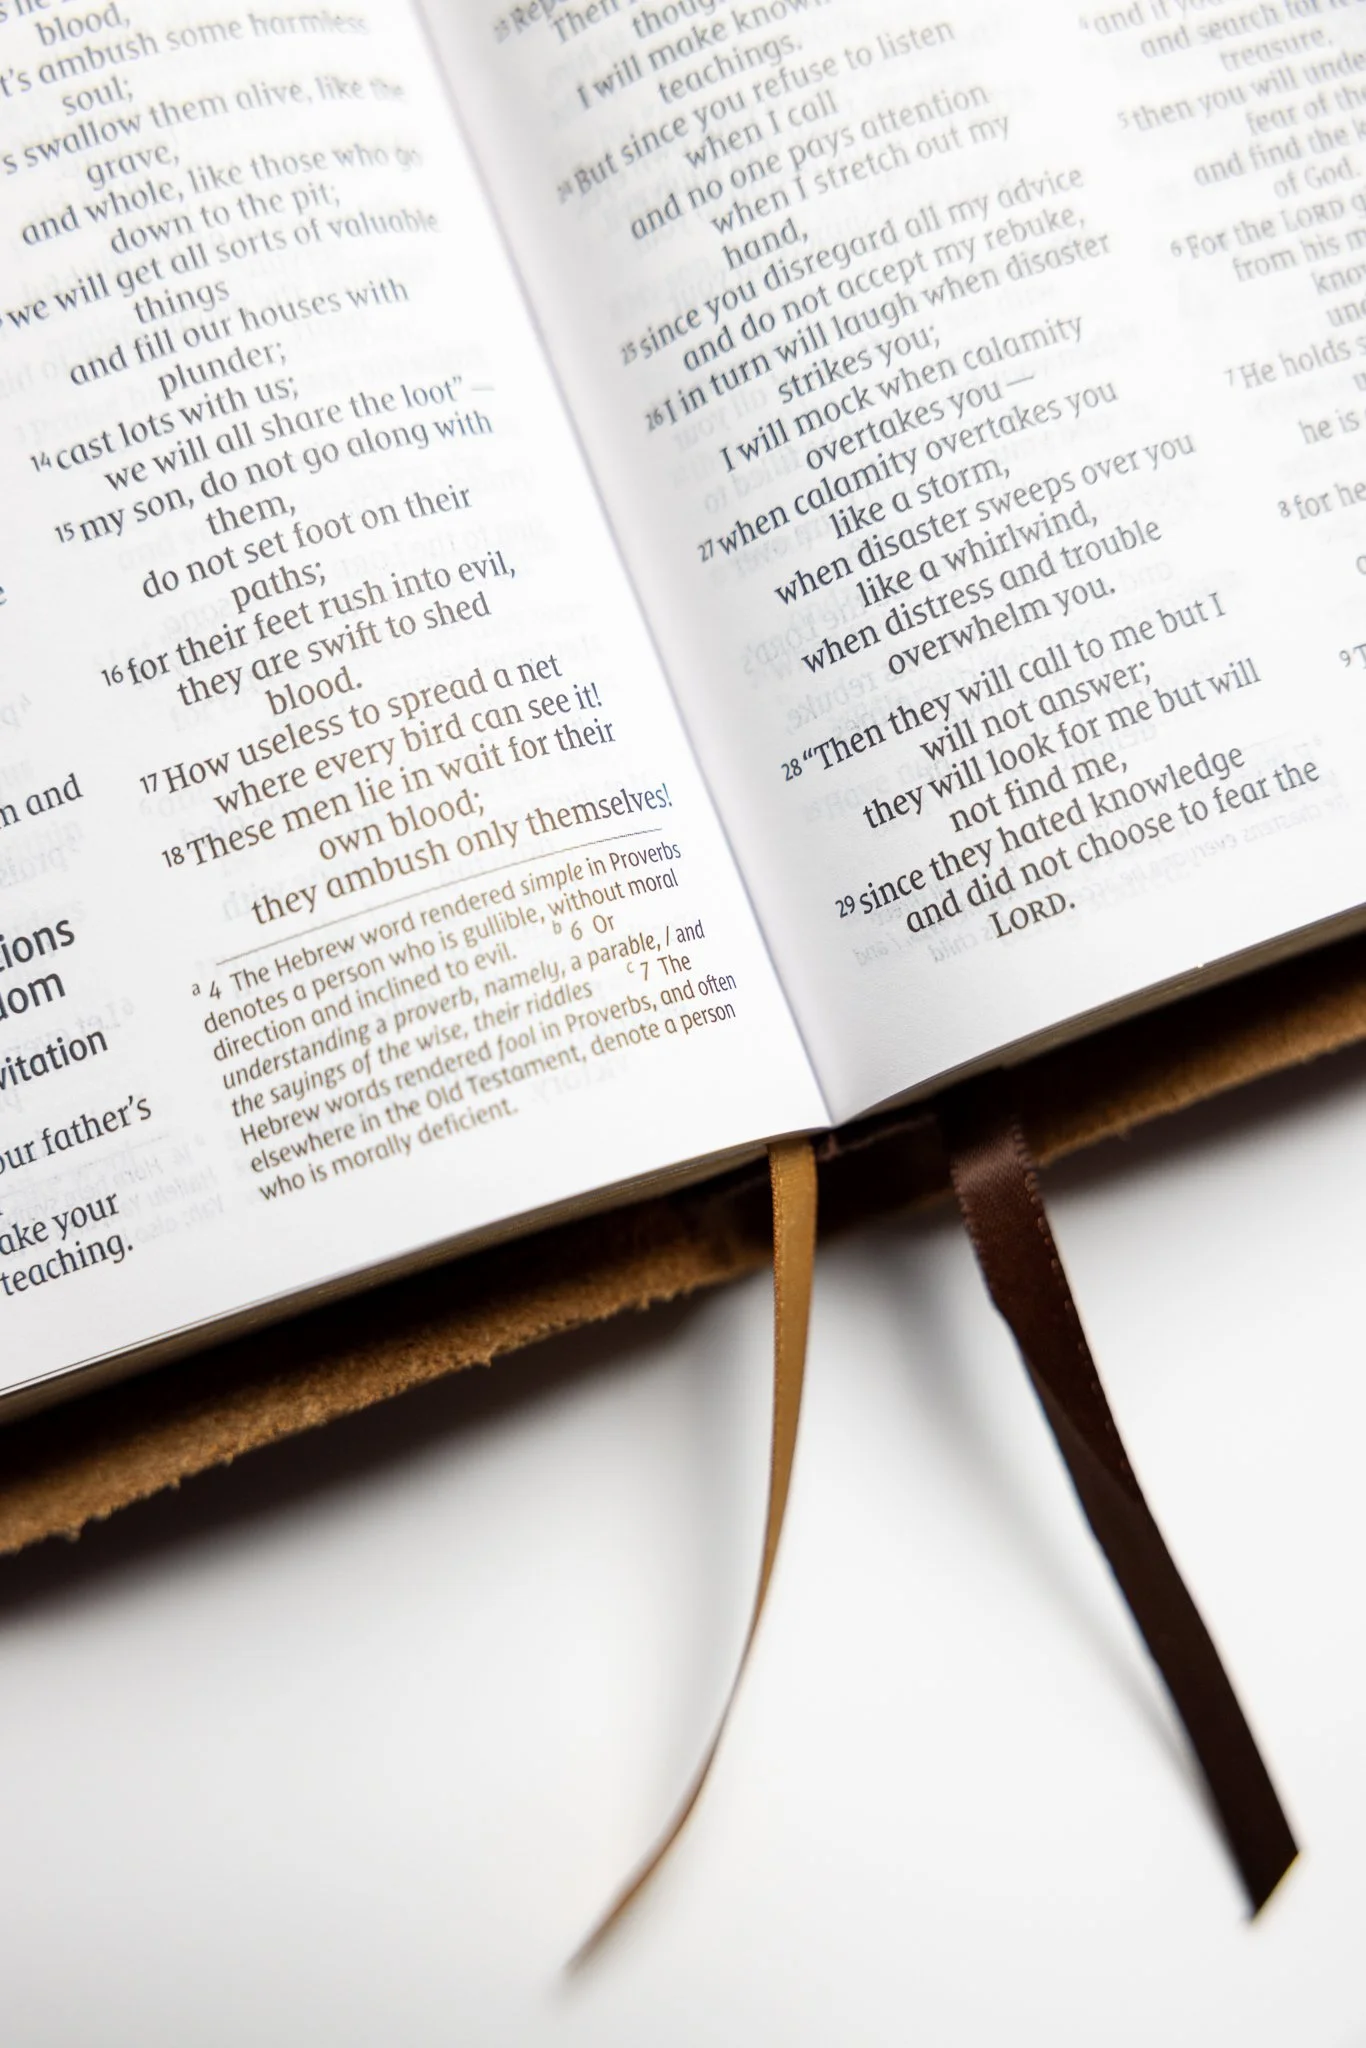 blood,
ambush some harmless
soul;
swallow them alive, like the
grave,
and whole, like those who go
down to the pit;
we will get all sorts of valuable
things
and fill our houses with
plunder;
14 cast lots with us;
we will all share the loot” —
15 my son, do not go along with
them,
do not set foot on their
paths;
16 for their feet rush into evil,
they are swift to shed
blood.
17 How useless to spread a net
where every bird can see it!
18 These men lie in wait for their
own blood;
they ambush only themselves!
and
vitation
our father’s
ake your
teaching.
a 4 The Hebrew word rendered simple in Proverbs
denotes a person who is gullible, without moral
direction and inclined to evil. b 6 Or
understanding a proverb, namely, a parable, / and
the sayings of the wise, their riddles c 7 The
Hebrew words rendered fool in Proverbs, and often
elsewhere in the Old Testament, denote a person
who is morally deficient.
Then I
I will make known
teachings.
24 But since you refuse to listen
when I call
and no one pays attention
when I stretch out my
hand,
25 since you disregard all my advice
and do not accept my rebuke,
26 I in turn will laugh when disaster
strikes you;
I will mock when calamity
overtakes you —
27 when calamity overtakes you
like a storm,
when disaster sweeps over you
like a whirlwind,
when distress and trouble
overwhelm you.
28 “Then they will call to me but I
will not answer;
they will look for me but will
not find me,
29 since they hated knowledge
and did not choose to fear the
LORD.
4 and if you
and search for
treasure,
5 then you will unde
fear of the
and find the
of God.
6 For the LORD
from his
7 He holds
he is
8 for he
9